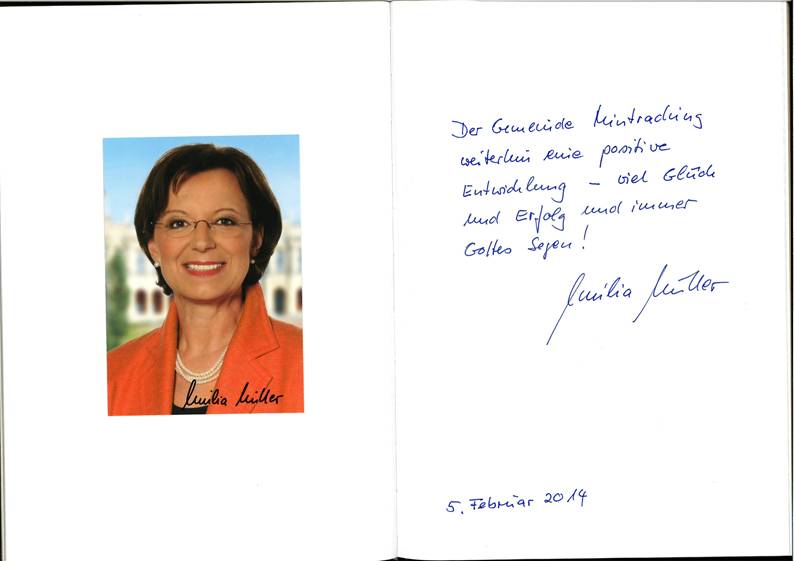 Emilia Müller
Der Gemeinde Mintraching
weiterhin eine positive
Entwicklung – viel Glück
und Erfolg und immer
Gottes Segen!
Emilia Müller
5. Februar 2014